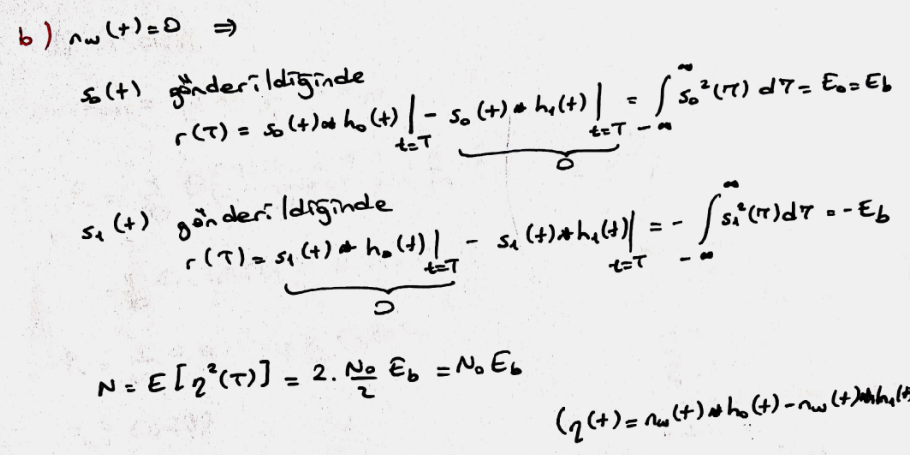 b) n_w(t)=0 ⇒
s₀(t) gönderildiğinde
r(T) = s₀(t)*h₀(t)|_{t=T} - s₀(t)*h₁(t)|_{t=T} = ∫_{-∞}^{∞} s₀²(τ) dτ = E₀ = E_b
0
s₁(t) gönderildiğinde
r(T) = s₁(t)*h₀(t)|_{t=T} - s₁(t)*h₁(t)|_{t=T} = - ∫_{-∞}^{∞} s₁²(τ) dτ = -E_b
0
N = E[η²(T)] = 2. N₀/2 E_b = N₀ E_b
(η(t) = n_w(t)*h₀(t) - n_w(t)*h₁(t)